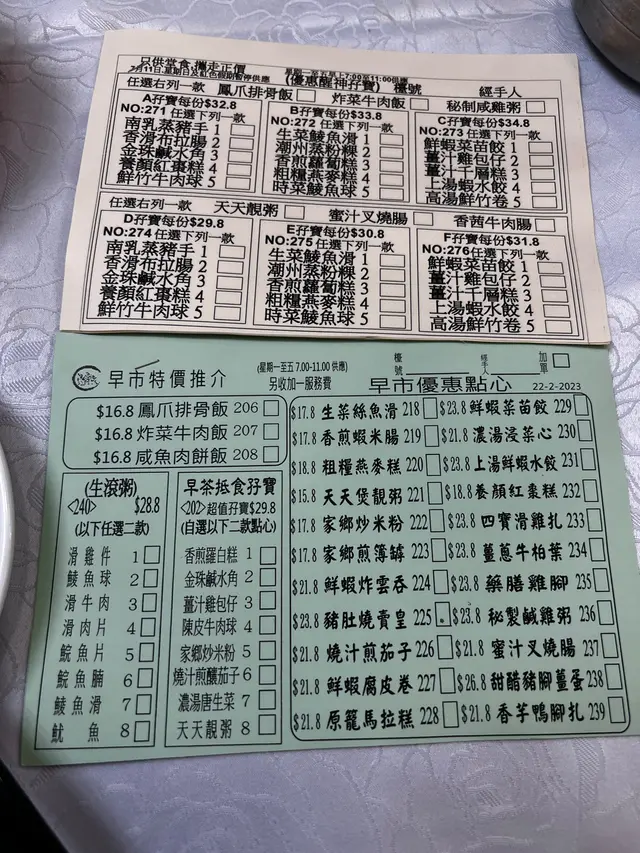 只供堂食,攜走正價
星期一至五早上7:00至11:00供應
(優惠醒神孖寶) 檯號 經手人
任選右列一款 鳳爪排骨飯 炸菜牛肉飯 秘制咸雞粥
A孖寶每份$32.8
NO:271 任選下列一款
南乳蒸豬手 1
香滑布拉腸 2
金珠鹹水角 3
養顏紅棗糕 4
鮮竹牛肉球 5
B孖寶每份$33.8
NO:272 任選下列一款
生菜鯪魚滑 1
潮州蒸粉粿 2
香煎蘿蔔糕 3
粗糧燕麥糕 4
時菜鯪魚球 5
C孖寶每份$34.8
NO:273 任選下列一款
鮮蝦菜苗餃 1
薑汁雞包仔 2
薑汁千層糕 3
上湯蝦水餃 4
高湯鮮竹卷 5
任選右列一款 天天靚粥 蜜汁叉燒腸 香茜牛肉腸
D孖寶每份$29.8
NO:274 任選下列一款
南乳蒸豬手 1
香滑布拉腸 2
金珠鹹水角 3
養顏紅棗糕 4
鮮竹牛肉球 5
E孖寶每份$30.8
NO:275 任選下列一款
生菜鯪魚滑 1
潮州蒸粉粿 2
香煎蘿蔔糕 3
粗糧燕麥糕 4
時菜鯪魚球 5
F孖寶每份$31.8
NO:276 任選下列一款
鮮蝦菜苗餃 1
薑汁雞包仔 2
薑汁千層糕 3
上湯蝦水餃 4
高湯鮮竹卷 5
早市特價推介
(星期一至五 7.00-11.00 供應)
另收加一服務費
檯號 經手人 加單
早市優惠點心 22-2-2023
$16.8 鳳爪排骨飯 206
$16.8 炸菜牛肉飯 207
$16.8 咸魚肉餅飯 208
(生滾粥)
<240> $28.8
(以下任選二款)
滑雞件 1
鯪魚球 2
滑牛肉 3
滑肉片 4
鯇魚片 5
鯇魚腩 6
鯪魚滑 7
魷魚 8
早茶抵食孖寶
<202> 超值孖寶$29.8
(自選以下二款點心)
香煎羅白糕 1
金珠鹹水角 2
薑汁雞包仔 3
陳皮牛肉球 4
家鄉炒米粉 5
燒汁煎釀茄子 6
濃湯唐生菜 7
天天靚粥 8
$17.8 生菜絲魚滑 218
$17.8 香煎蝦米腸 219
$18.8 粗糧燕麥糕 220
$15.8 天天煲靚粥 221
$17.8 家鄉炒米粉 222
$17.8 家鄉煎薄罉 223
$21.8 鮮蝦炸雲吞 224
$23.8 豬肚燒賣皇 225
$21.8 燒汁煎茄子 226
$21.8 鮮蝦腐皮卷 227
$21.8 原籠馬拉糕 228
$23.8 鮮蝦菜苗餃 229
$21.8 濃湯浸菜心 230
$23.8 上湯鮮蝦水餃 231
$18.8 養顏紅棗糕 232
$23.8 四寶滑雞扎 233
$23.8 薑蔥牛柏葉 234
$23.8 藥膳雞腳 235
$23.8 秘製鹹雞粥 236
$21.8 蜜汁叉燒腸 237
$26.8 甜醋豬腳薑蛋 238
$21.8 香芋鴨腳扎 239